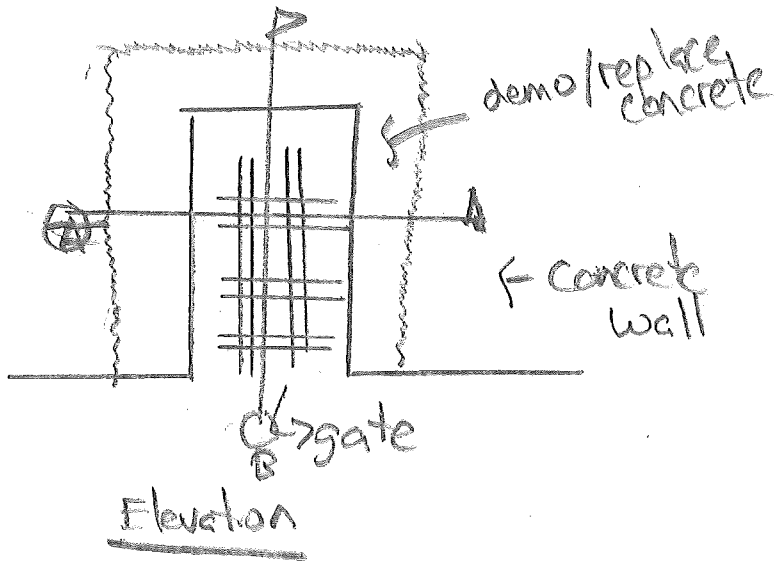 demo/replace
concrete
A
← concrete
wall
gate
B
Elevation